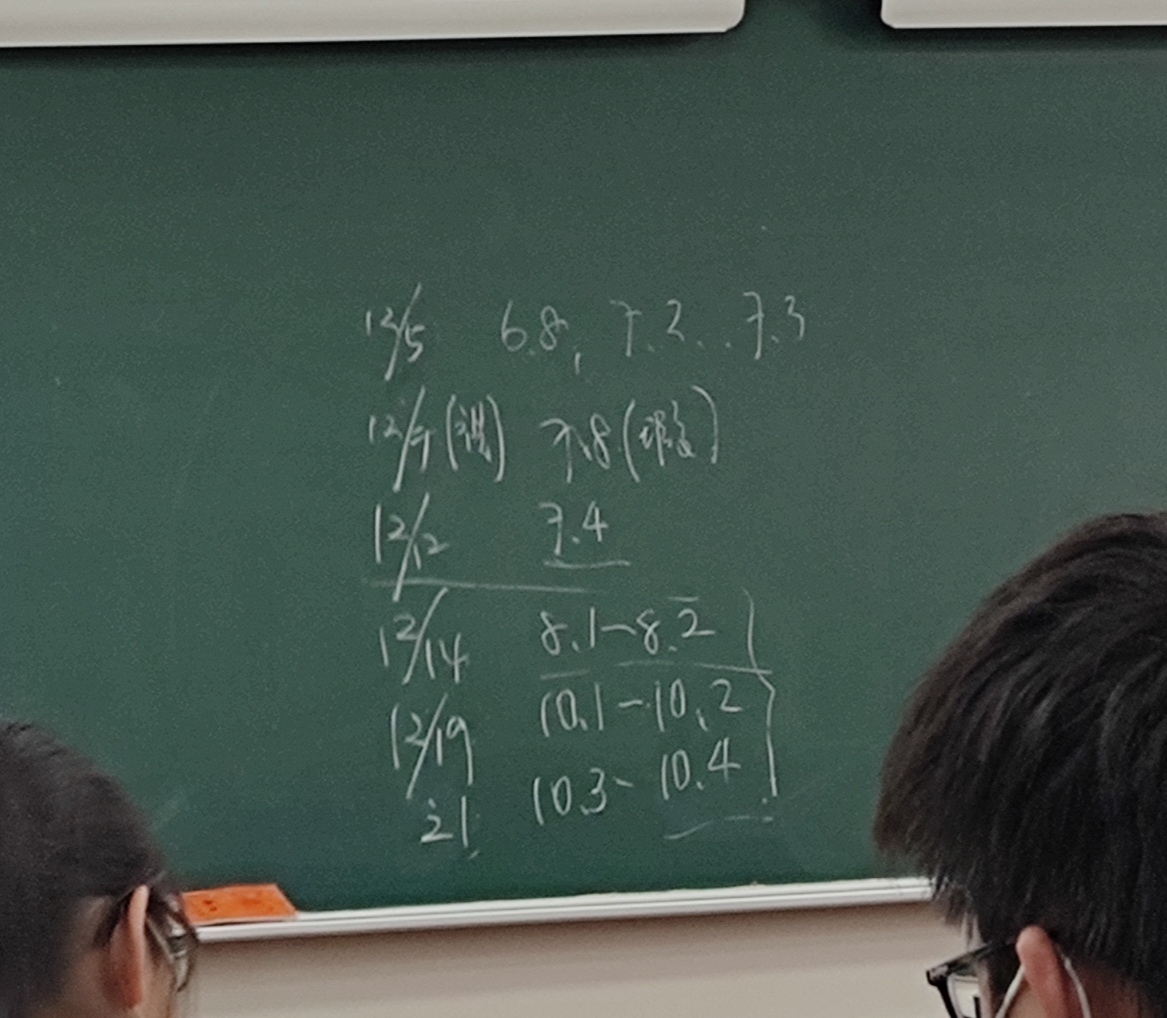 12/5 6.8, 7.2.. 7.3
12/7 7.8
12/12 7.4
12/14 8.1-8.2
12/19 10.1-10.2
21 10.3-10.4